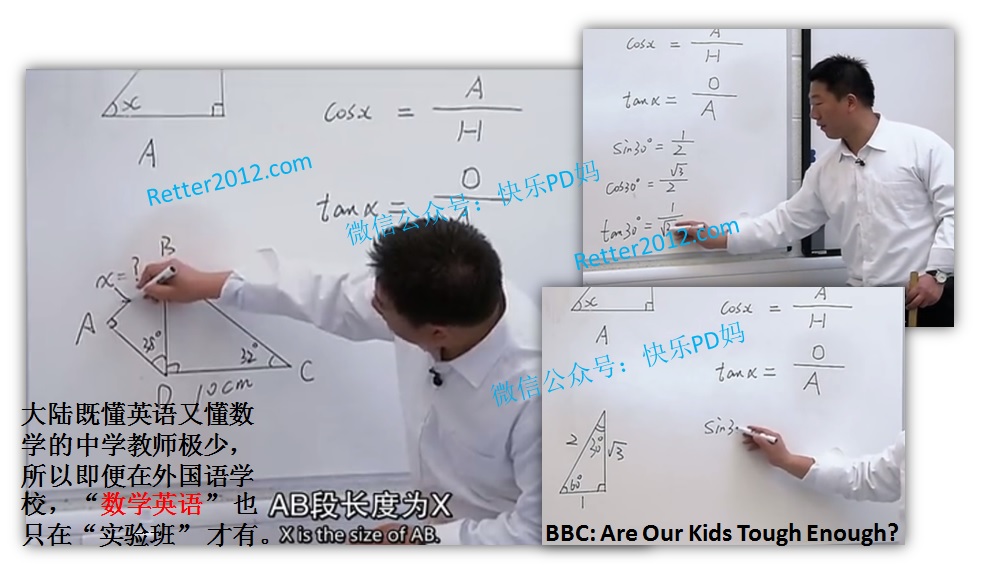 x
A
cosx = A/H
tanx = O/A
Retter2012.com
微信公众号：快乐PD妈
x=?
B
A
38°
32°
D
10cm
C
大陆既懂英语又懂数
学的中学教师极少，
所以即便在外国语学
校，“数学英语”也
只在“实验班”才有。
AB段长度为X
X is the size of AB.
cosx = A/H
tanx = O/A
sin30° = 1/2
cos30° = √3/2
tan30° = 1/
Retter2012.com
x
A
cosx = A/H
tanx = O/A
微信公众号：快乐PD妈
sin3
2
30°
√3
60°
1
BBC: Are Our Kids Tough Enough?